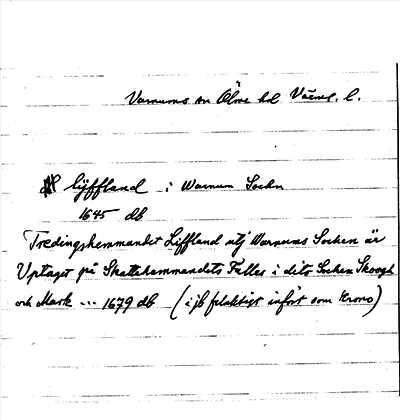 Varnums sn Ölme hd Värml. l.
lijffland i Warnum Sochn
1645 db
Tredingshemmandet Liffland utj Warnums Sochen är
Uptaget på Skattehemmandets Felles i dito Sochen Skoogh
och Mark --- 1679 db (i jb felaktigt infört som Krono)